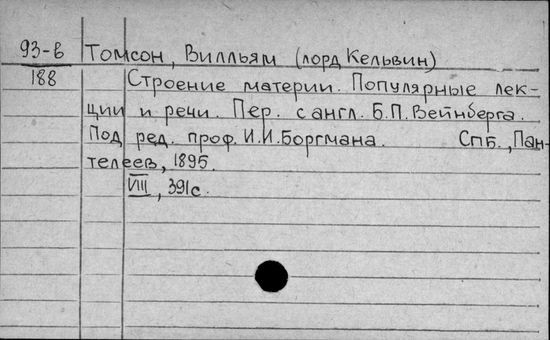 93-в Томсон, Вилльям (лорд Кельвин)
188 Строение материи. Популярные лек-
ции и речи. Пер. с англ. Б.П. Вейнберга.
Под ред. проф. И.И. Боргмана. СПБ., Пан-
телеев, 1895.
VIII, 391с.